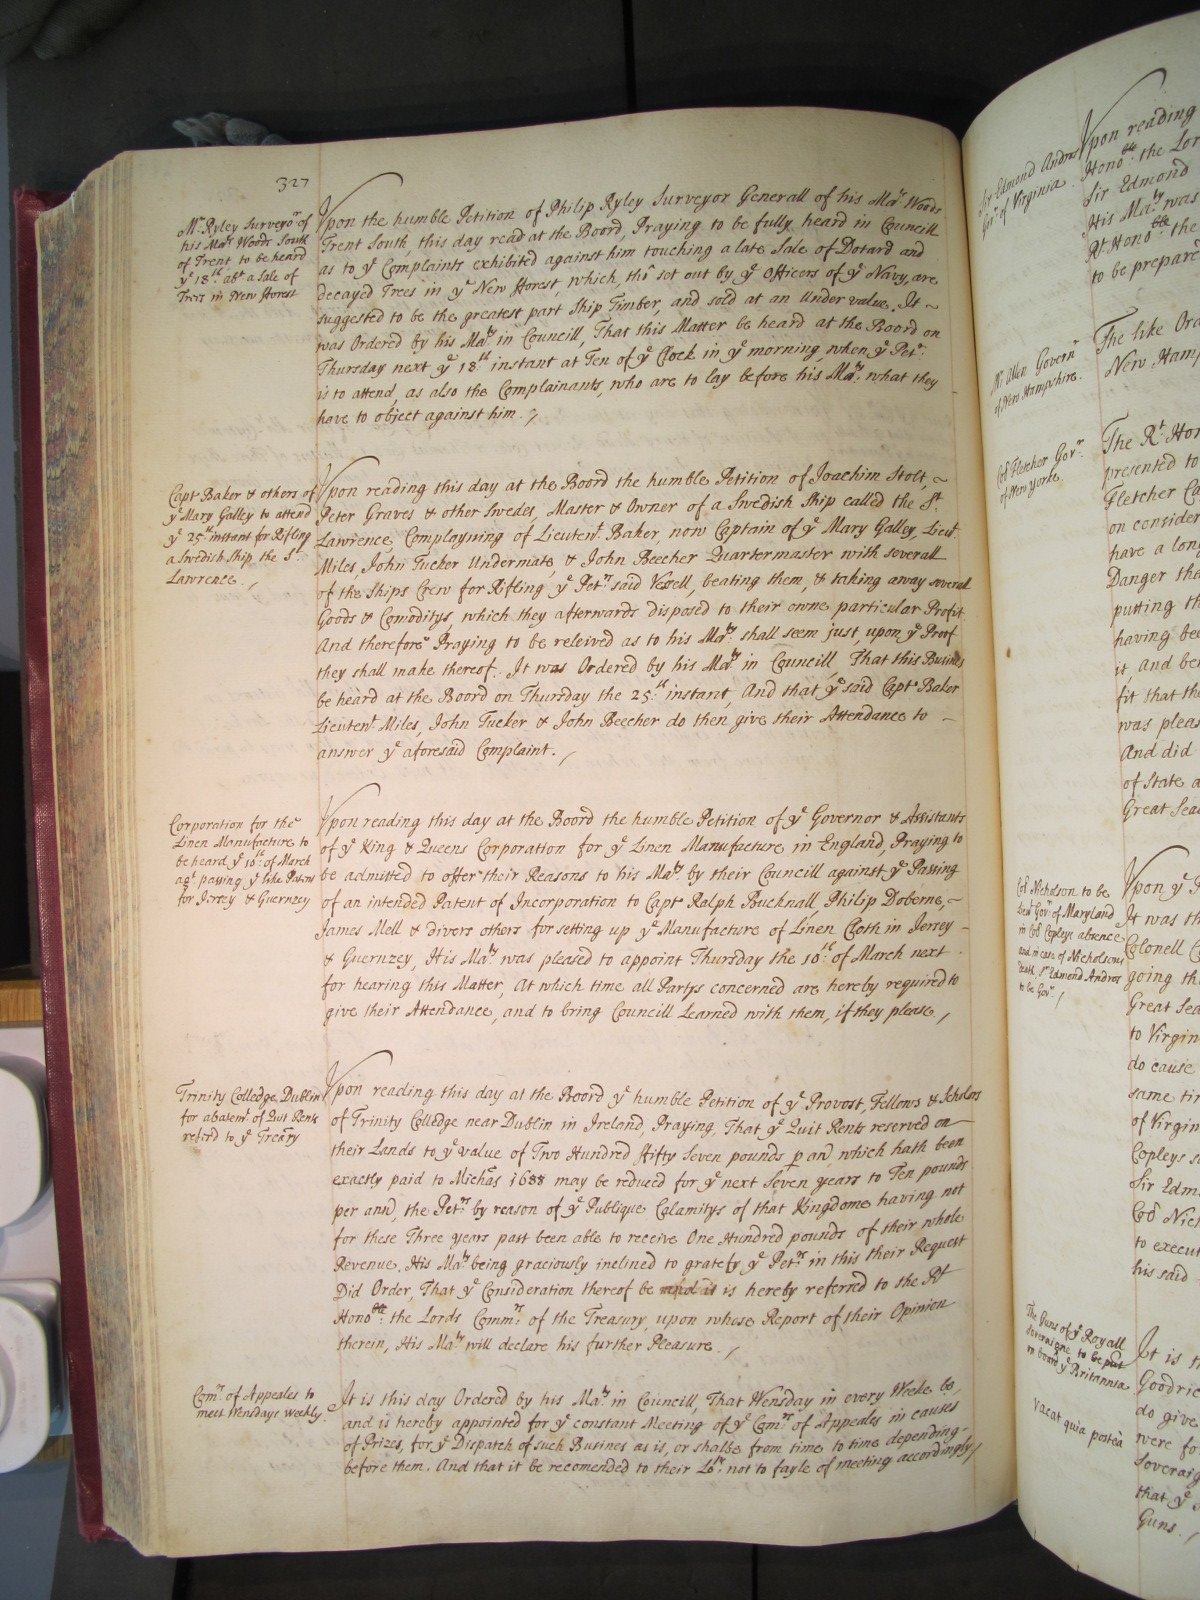 327
Mr. Ryley Surveyor of
his Mats Woods South
of Trent to be heard
ye 18th. abt a Sale of
Trees in New fforest
Upon the humble Petition of Philip Ryley Surveyor Generall of his Mats Woods
Trent South, this day read at the Board, Praying to be fully heard in Councill
as to ye Complaints exhibited against him touching a late Sale of Dotard and
decayed Trees in ye New fforest, which, tho' set out by ye Officers of ye Navy, are
suggested to be the greatest part Ship Timber, and sold at an Under value. It ~
was Ordered by his Maty in Councill, That this Matter be heard at the Board on
Thursday next ye 18th instant at Ten of ye Clock in ye morning, when ye Petr.
is to attend, as also the Complainants, who are to lay before his Maty. what they
have to object against him.
Capt Baker & others of
ye Mary Galley to attend
ye 25th instant for Rifling
a Swedish Ship the St.
Lawrence.
Upon reading this day at the Board the humble Petition of Joachim Stolt, ~
Peter Graves & other Swedes, Master & Owner of a Swedish Ship called the St.
Lawrence, Complayning of Lieutent. Baker, now Captain of ye Mary Galley, Lieut.
Miles, John Tucker Undermate, & John Beecher Quartermaster with severall
of the Ships Crew for Rifling ye Petrs said Vessell, beating them, & taking away severall
Goods & Comoditys, which they afterwards disposed to their owne particular Profit
And therefore Praying to be releived as to his Maty. shall seem just, upon ye Proof
they shall make thereof. It was Ordered by his Maty in Councill, That this Busines
be heard at the Board on Thursday the 25th. instant, And that ye said Capt Baker
Lieutent Miles, John Tucker & John Beecher do then give their Attendance to ~
answer ye aforesaid Complaint.
Corporation for the
Linen Manufacture to
be heard ye 10th of March
agt passing ye like Patent
for Jersey & Guernzey
Upon reading this day at the Board the humble Petition of ye Governor & Assistants
of ye King & Queens Corporation for ye Linen Manufacture in England, Praying to
be admitted to offer their Reasons to his Maty. by their Councill against ye Passing
of an intended Patent of Incorporation to Capt Ralph Bucknall, Philip Doberne, ~
James Mell & divers others for setting up ye Manufacture of Linen Cloth in Jersey ~
& Guernzey, His Maty. was pleased to appoint Thursday the 10th of March next
for hearing this Matter, At which time all Partys concerned are hereby required to
give their Attendance, and to bring Councill Learned with them, if they please.
Trinity Colledge Dublin
for abatemt. of Quit Rents
referd to ye Treary
Upon reading this day at the Board ye humble Petition of ye Provost, Fellows & Scholars
of Trinity Colledge near Dublin in Ireland, Praying, That ye Quit Rents reserved on
their Lands to ye value of Two Hundred fifty Seven pounds p an, which hath been
exactly paid to Michas 1688 may be reduced for ye next Seven years to Ten pounds
per ann, the Petrs by reason of ye Publique Calamitys of that Kingdome having not
for these Three years past been able to receive One Hundred pounds of their whole
Revenue. His Maty being graciously inclined to gratefy ye Petrs in this their Request
Did Order, That ye Consideration thereof be is hereby referred to the Rt
Honoble. the Lords Commrs of the Treasury, upon whose Report of their Opinion
therein, His Maty will declare his further Pleasure.
Comrs. of Appeales to
meet Wensdays weekly.
It is this day Ordered by his Maty. in Councill, That Wensday in every Weeke be,
and is hereby appointed for ye constant Meeting of ye Comrs. of Appeales in causes
of Prizes, for ye Dispatch of such Busines as is, or shalbe from time to time depending ~
before them. And that it be recomended to their Lops. not to fayle of meeting accordingly
Sir Edmond Andros
Govr. of Virginia
Upon reading
Honoble. the Lor
Sir Edmond
His Maty was
Rt Honoble the
to be prepare
Mr. Allen Governr
of New Hampshire.
The like Ord
New Hamp
Coll Fletcher Govr.
of New Yorke
The Rt. Hon
presented to
Fletcher Ca
on consider
have a long
Danger tha
putting th
having bee
it, and ber
fit that th
was pleas
And did
of State a
Great Sea
Coll Nicholson to be
Lieut Govr of Maryland
in Coll Copleys absence
and in case of Nicholsons
Death, Sr Edmond Andros
to be Govr.
Upon ye P
It was th
Colonell C
going th
Great Sea
to Virgin
do cause
same tim
of Virgin
Copleys s
Sir Edm
Coll Nich
to execut
his said
The Guns of ye Royall
Soveraigne to be put
on board ye Britannia
vacat quia postea
It is th
Goodric
do give
were fo
Soveraig
that ye
Guns.